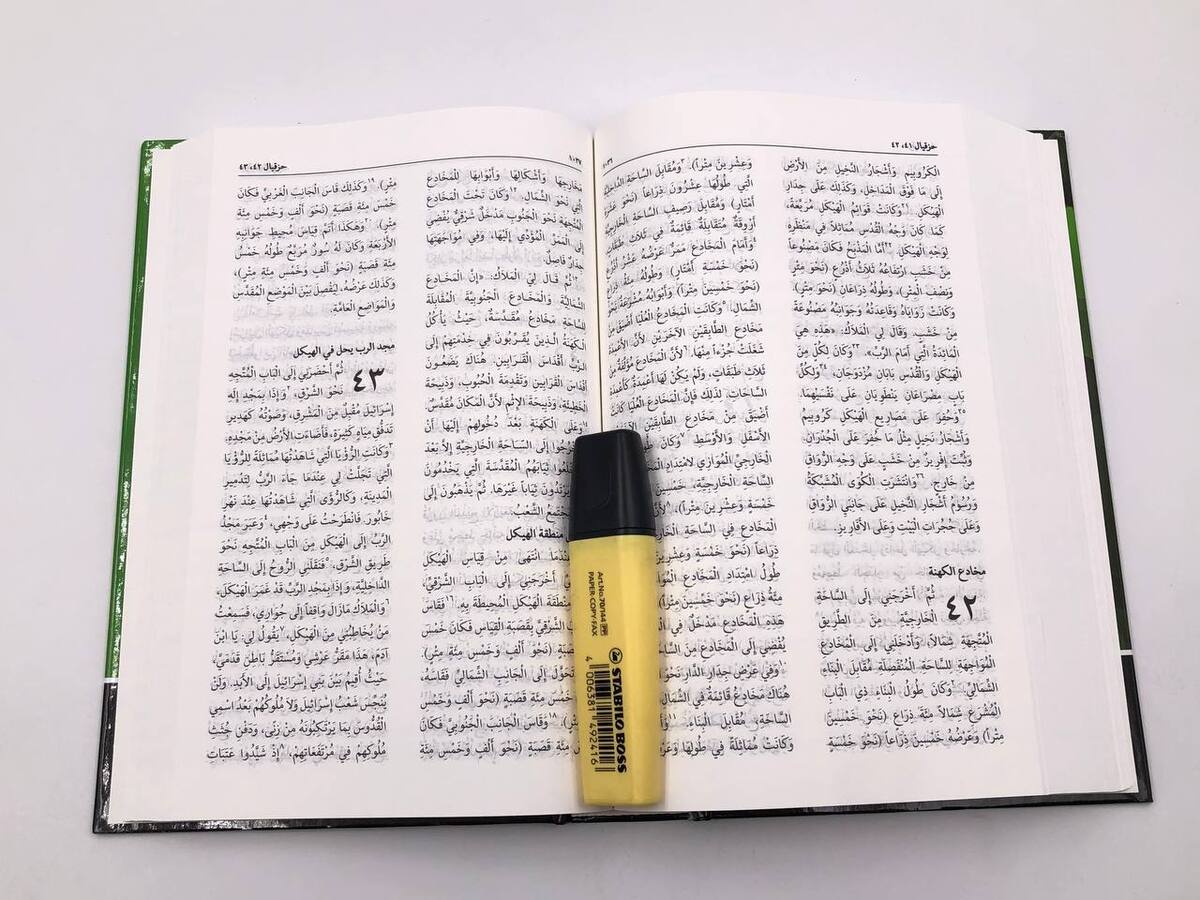 حزقيال ٤١، ٤٢
١٠٣٦
الكروبيم وأشجار النخيل من الأرض
إلى ما فوق المداخل، وكذلك على جدار
الهيكل. ٢١وكانت قوائم الهيكل مربعة،
كما كان وجه القدس مماثلاً في منظره
لوجه الهيكل. ٢٢أما المذبح فكان مصنوعاً
من خشب ارتفاعه ثلاث أذرع (نحو متر
ونصف المتر)، وطوله ذراعان (نحو متر).
وكانت زواياه وقاعدته وجوانبه مصنوعة
من خشب. وقال لي الملاك: «هذه هي
المائدة التي أمام الرب». ٢٣وكان لكل من
الهيكل والقدس بابان مزدوجان، ٢٤ولكل
باب مصراعان ينطويان على نفسيهما.
٢٥وحفر على مصاريع الهيكل كروبيم
وأشجار نخيل مثل ما حفر على الجدران.
وثبت إفريز من خشب على وجه الرواق
من خارج. ٢٦وانتشرت الكوى المشبكة
ورسوم أشجار النخيل على جانبي الرواق
وعلى حجرات البيت وعلى الأفاريز.
مخادع الكهنة
٤٢ ثم أخرجني إلى الساحة
الخارجية من الطريق
المتجهة شمالاً، وأدخلني إلى المخادع
المواجهة الساحة المنفصلة مقابل البناء
الشمالي. ٢وكان طول البناء ذي الباب
المشرع شمالاً مئة ذراع (نحو خمسين
متراً) وعرضه خمسين ذراعاً (نحو خمسة
وعشرين متراً). ٣ومقابل الساحة الداخلية
التي طولها عشرون ذراعاً (نحو عشرة
أمتار) ومقابل رصيف الساحة الخارجية
أروقة متقابلة قائمة في ثلاث طبقات.
٤وأمام المخادع ممر عرضه عشر
(نحو خمسة أمتار) وطوله مئة
(نحو خمسين متراً) وأبوابه مشرعة نحو
الشمال. ٥وكانت المخادع العليا أضيق من
مخادع الطابقين الآخرين، لأن الأعمدة
شغلت جزءاً منها. ٦لأن المخادع مؤلفة من
ثلاث طبقات، ولم يكن لها أعمدة كأعمدة
الساحات، لذلك فإن المخادع العليا كانت
أضيق من مخادع الطابقين
الأسفل والأوسط. ٧وكان
الخارجي الموازي لامتداد المخادع
الساحة الخارجية، خمسين
خمسة وعشرين متراً)، ٨لأن
المخادع في الساحة الخارجية
ذراعاً (نحو خمسة وعشرين
طول امتداد المخادع
مئة ذراع (نحو خمسين متراً)
هذه المخادع مدخل في الشرق
يفضي إلى المخادع من
١٠وفي عرض جدار الدار نحو
هناك مخادع قائمة في
الساحة، مقابل البناء،
وكانت مماثلة في طولها وعرضها
١٠٣٧
حزقيال ٤٢، ٤٣
مخارجها وأشكالها وأبوابها للمخادع
التي نحو الشمال. ١٢وكان تحت المخادع
المتجهة نحو الجنوب مدخل شرقي يفضي
إلى الممر المؤدي إليها، وفي مواجهتها
جدار فاصل.
١٣ثم قال لي الملاك: «إن المخادع
الشمالية والمخادع الجنوبية المقابلة
للساحة مخادع مقدسة، حيث يأكل
الكهنة الذين يقربون في خدمتهم إلى
الرب أقداس القرابين. هناك يضعون
أقداس القرابين وتقدمة الحبوب، وذبيحة
الخطيئة، وذبيحة الإثم لأن المكان مقدس.
١٤وعلى الكهنة بعد دخولهم إليها أن
إلى الساحة الخارجية إلا بعد
ثيابهم المقدسة التي يخدمون
يرتدون ثياباً غيرها. ثم يذهبون إلى
مجتمع الشعب».
منطقة الهيكل
عندما انتهى من قياس الهيكل
أخرجني إلى الباب الشرقي،
منطقة الهيكل المحيطة به. ١٦فقاس
الشرقي بقصبة القياس فكان خمس
قصبة (نحو ألف وخمس مئة متر).
تحول إلى الجانب الشمالي فقاسه،
خمس مئة قصبة (نحو ألف وخمس
متر). ١٨وقاس الجانب الجنوبي فكان
مئة قصبة (نحو ألف وخمس مئة
متر). ١٩وكذلك قاس الجانب الغربي فكان
خمس مئة قصبة (نحو ألف وخمس مئة
متر). ٢٠وهكذا أتم قياس محيط جوانبه
الأربعة وكان له سور مربع طوله خمس
مئة قصبة (نحو ألف وخمس مئة متر)،
وكذلك عرضه، ليفصل بين الموضع المقدس
والمواضع العامة.
مجد الرب يحل في الهيكل
٤٣ ثم أحضرني إلى الباب المتجه
نحو الشرق، ٢وإذا بمجد إله
إسرائيل مقبل من المشرق، وصوته كهدير
تدفق مياه كثيرة، فأضاءت الأرض من مجده.
٣وكانت الرؤيا التي شاهدتها مماثلة للرؤيا
التي تجلت لي عندما جاء الرب لتدمير
المدينة، وكالرؤى التي شاهدتها عند نهر
خابور. فانطرحت على وجهي، ٤وعبر مجد
الرب إلى الهيكل من الباب المتجه نحو
طريق الشرق، ٥فنقلني الروح إلى الساحة
الداخلية، وإذا بمجد الرب قد غمر الهيكل،
٦والملاك مازال واقفاً إلى جواري، فسمعت
من يخاطبني من الهيكل، ٧يقول لي: يا ابن
آدم، هذا مقر عرشي ومستقر باطن قدمي،
حيث أقيم بين بني إسرائيل إلى الأبد. ولن
ينجس شعب إسرائيل ولا ملوكهم بعد اسمي
القدوس بما يرتكبونه من زنى، ودفن جثث
ملوكهم في مرتفعاتهم، ٨إذ شيدوا عتبات
Art.No.70/144
PAPER-COPY-FAX
STABILO BOSS
4 006381 492416